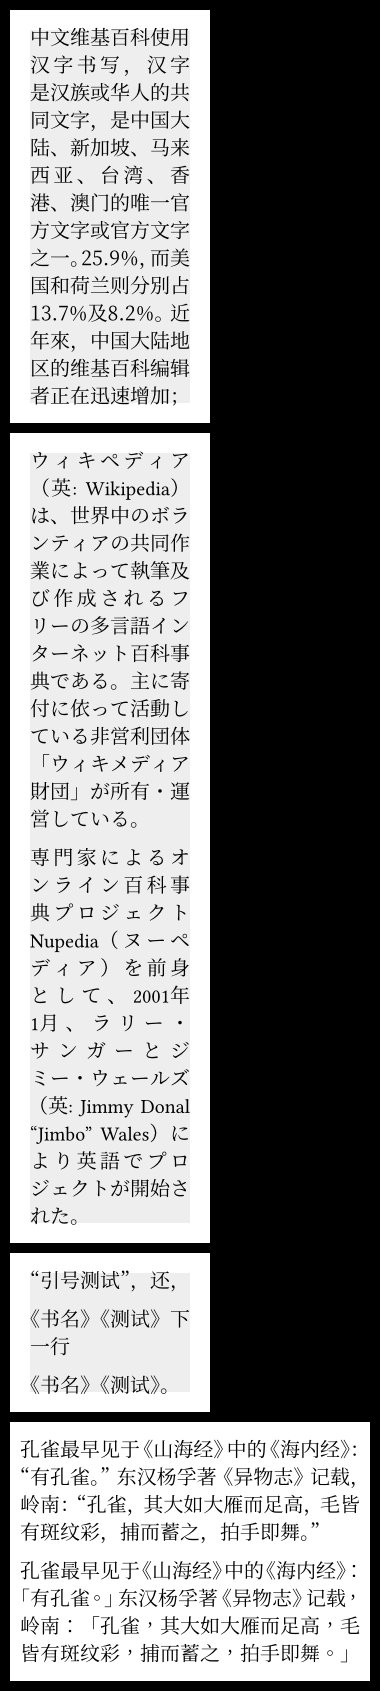 中文维基百科使用
汉字书写，汉字
是汉族或华人的共
同文字，是中国大
陆、新加坡、马来
西亚、台湾、香
港、澳门的唯一官
方文字或官方文字
之一。25.9%，而美
国和荷兰则分別占
13.7%及8.2%。近
年來，中国大陆地
区的维基百科编辑
者正在迅速增加；
ウィキペディア
（英: Wikipedia）
は、世界中のボラ
ンティアの共同作
業によって執筆及
び作成されるフ
リーの多言語イン
ターネット百科事
典である。主に寄
付に依って活動し
ている非営利団体
「ウィキメディア
財団」が所有・運
営している。
専門家によるオ
ンライン百科事
典プロジェクト
Nupedia（ヌーペ
ディア）を前身
として、2001年
1月、ラリー・
サンガーとジ
ミー・ウェールズ
（英: Jimmy Donal
“Jimbo” Wales）に
より英語でプロ
ジェクトが開始さ
れた。
“引号测试”，还，
《书名》《测试》下
一行
《书名》《测试》。
孔雀最早见于《山海经》中的《海内经》：
“有孔雀。”东汉杨孚著《异物志》记载，
岭南：“孔雀，其大如大雁而足高，毛皆
有斑纹彩，捕而蓄之，拍手即舞。”
孔雀最早见于《山海经》中的《海内经》：
「有孔雀。」东汉杨孚著《异物志》记载，
岭南：「孔雀，其大如大雁而足高，毛
皆有斑纹彩，捕而蓄之，拍手即舞。」